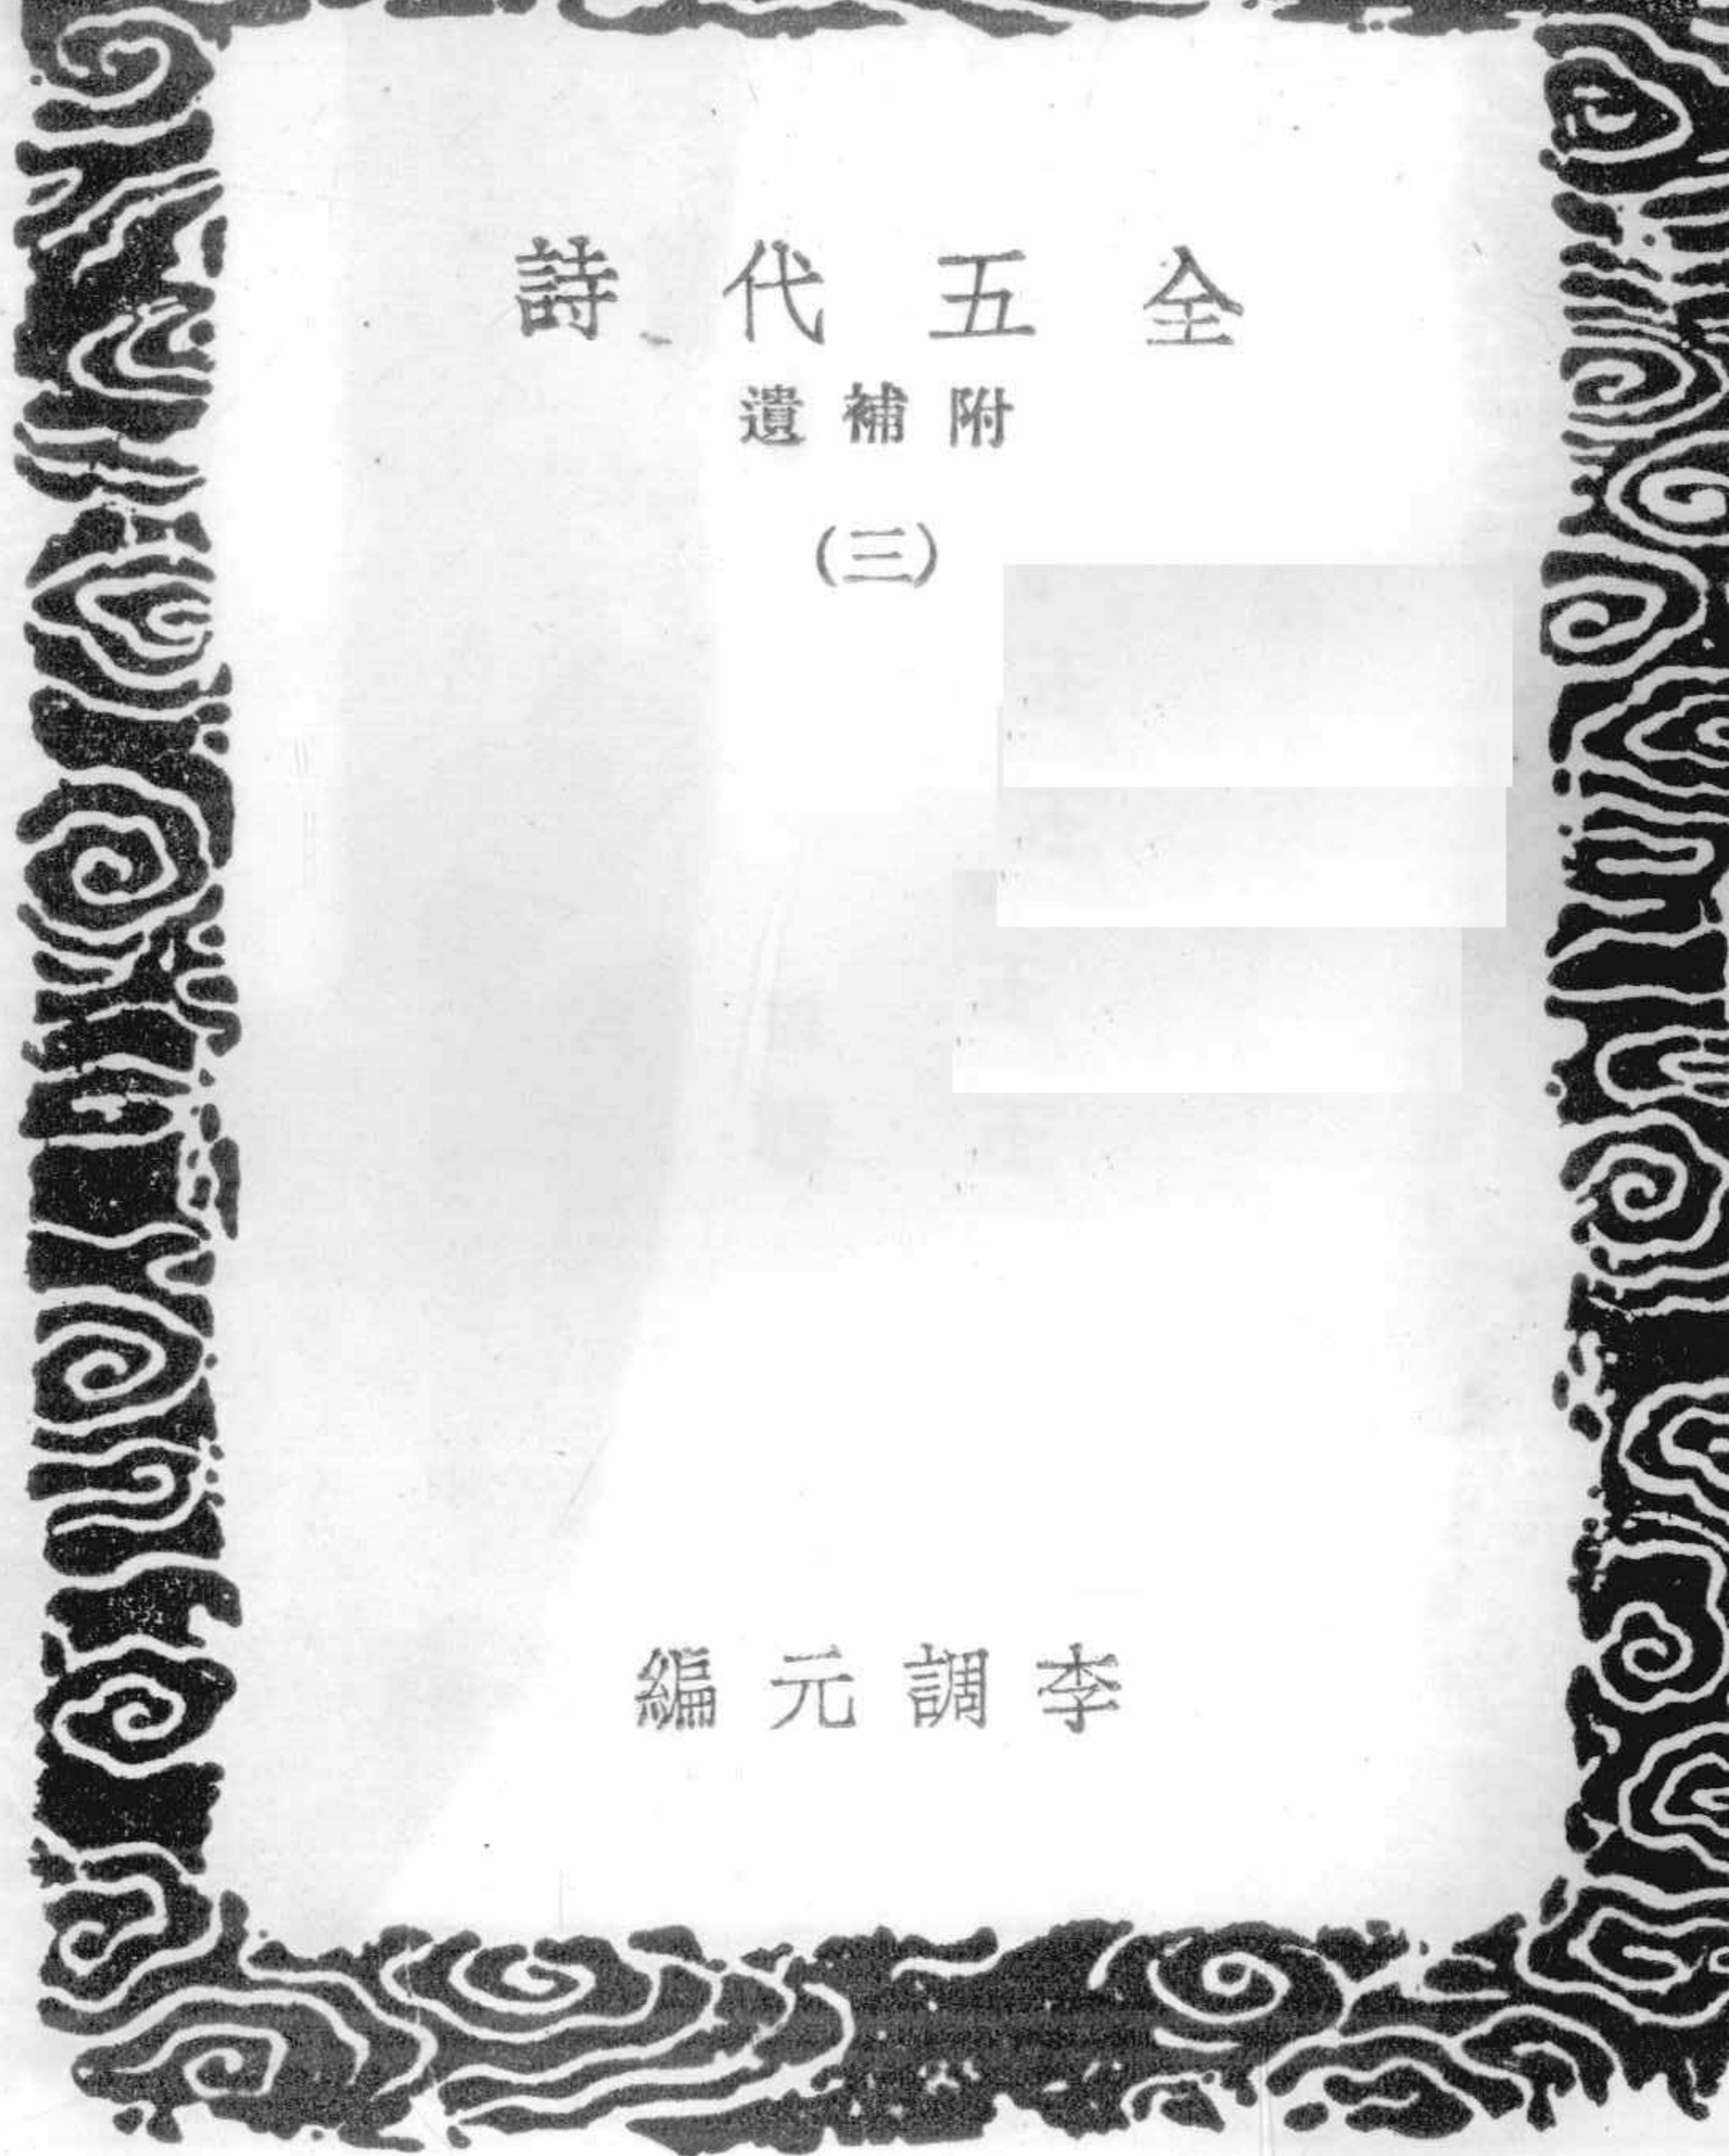 全五代詩
附補遺
(三)
李調元編